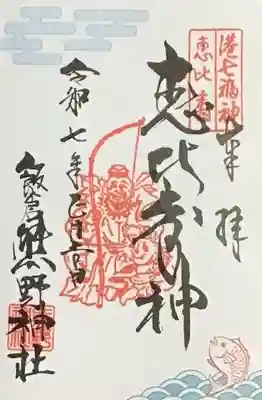 港七福神
恵比寿
奉拝
恵比寿神
令和七年
飯倉熊野神社